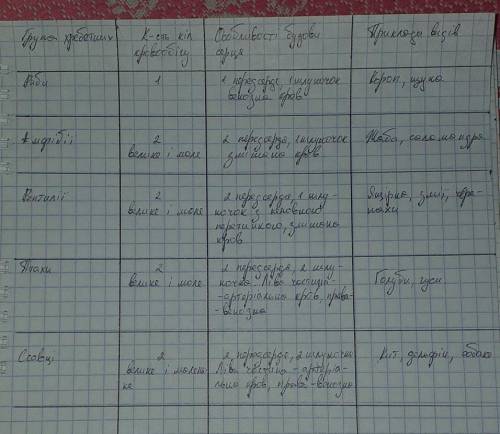 Група хребетних
К-сть кіл
кровообігу
Особливості будови
серця
Приклади видів
Риби
1
1 передсердя, 1 шлуночок
венозна кров
Короп, щука
Амфібії
2
велике і мале
2 передсердя, 1 шлуночок
змішана кров
Жаба, саламандра
Рептилії
2
велике і мале
2 передсердя, 1 шлу-
ночок з неповною
перетинкою, змішана
кров
Ящірка, змії, чере-
пахи
Птахи
2
велике і мале
2 передсердя, 2 шлу-
ночка. Ліва частина
-артеріальна кров, права-
-венозна
Голуби, гуси
Ссавці
2
велике і малень-
ке
2 передсердя, 2 шлуночка
Ліва частина - артеріа-
льна кров, права - венозна
Кіт, дельфін, собака